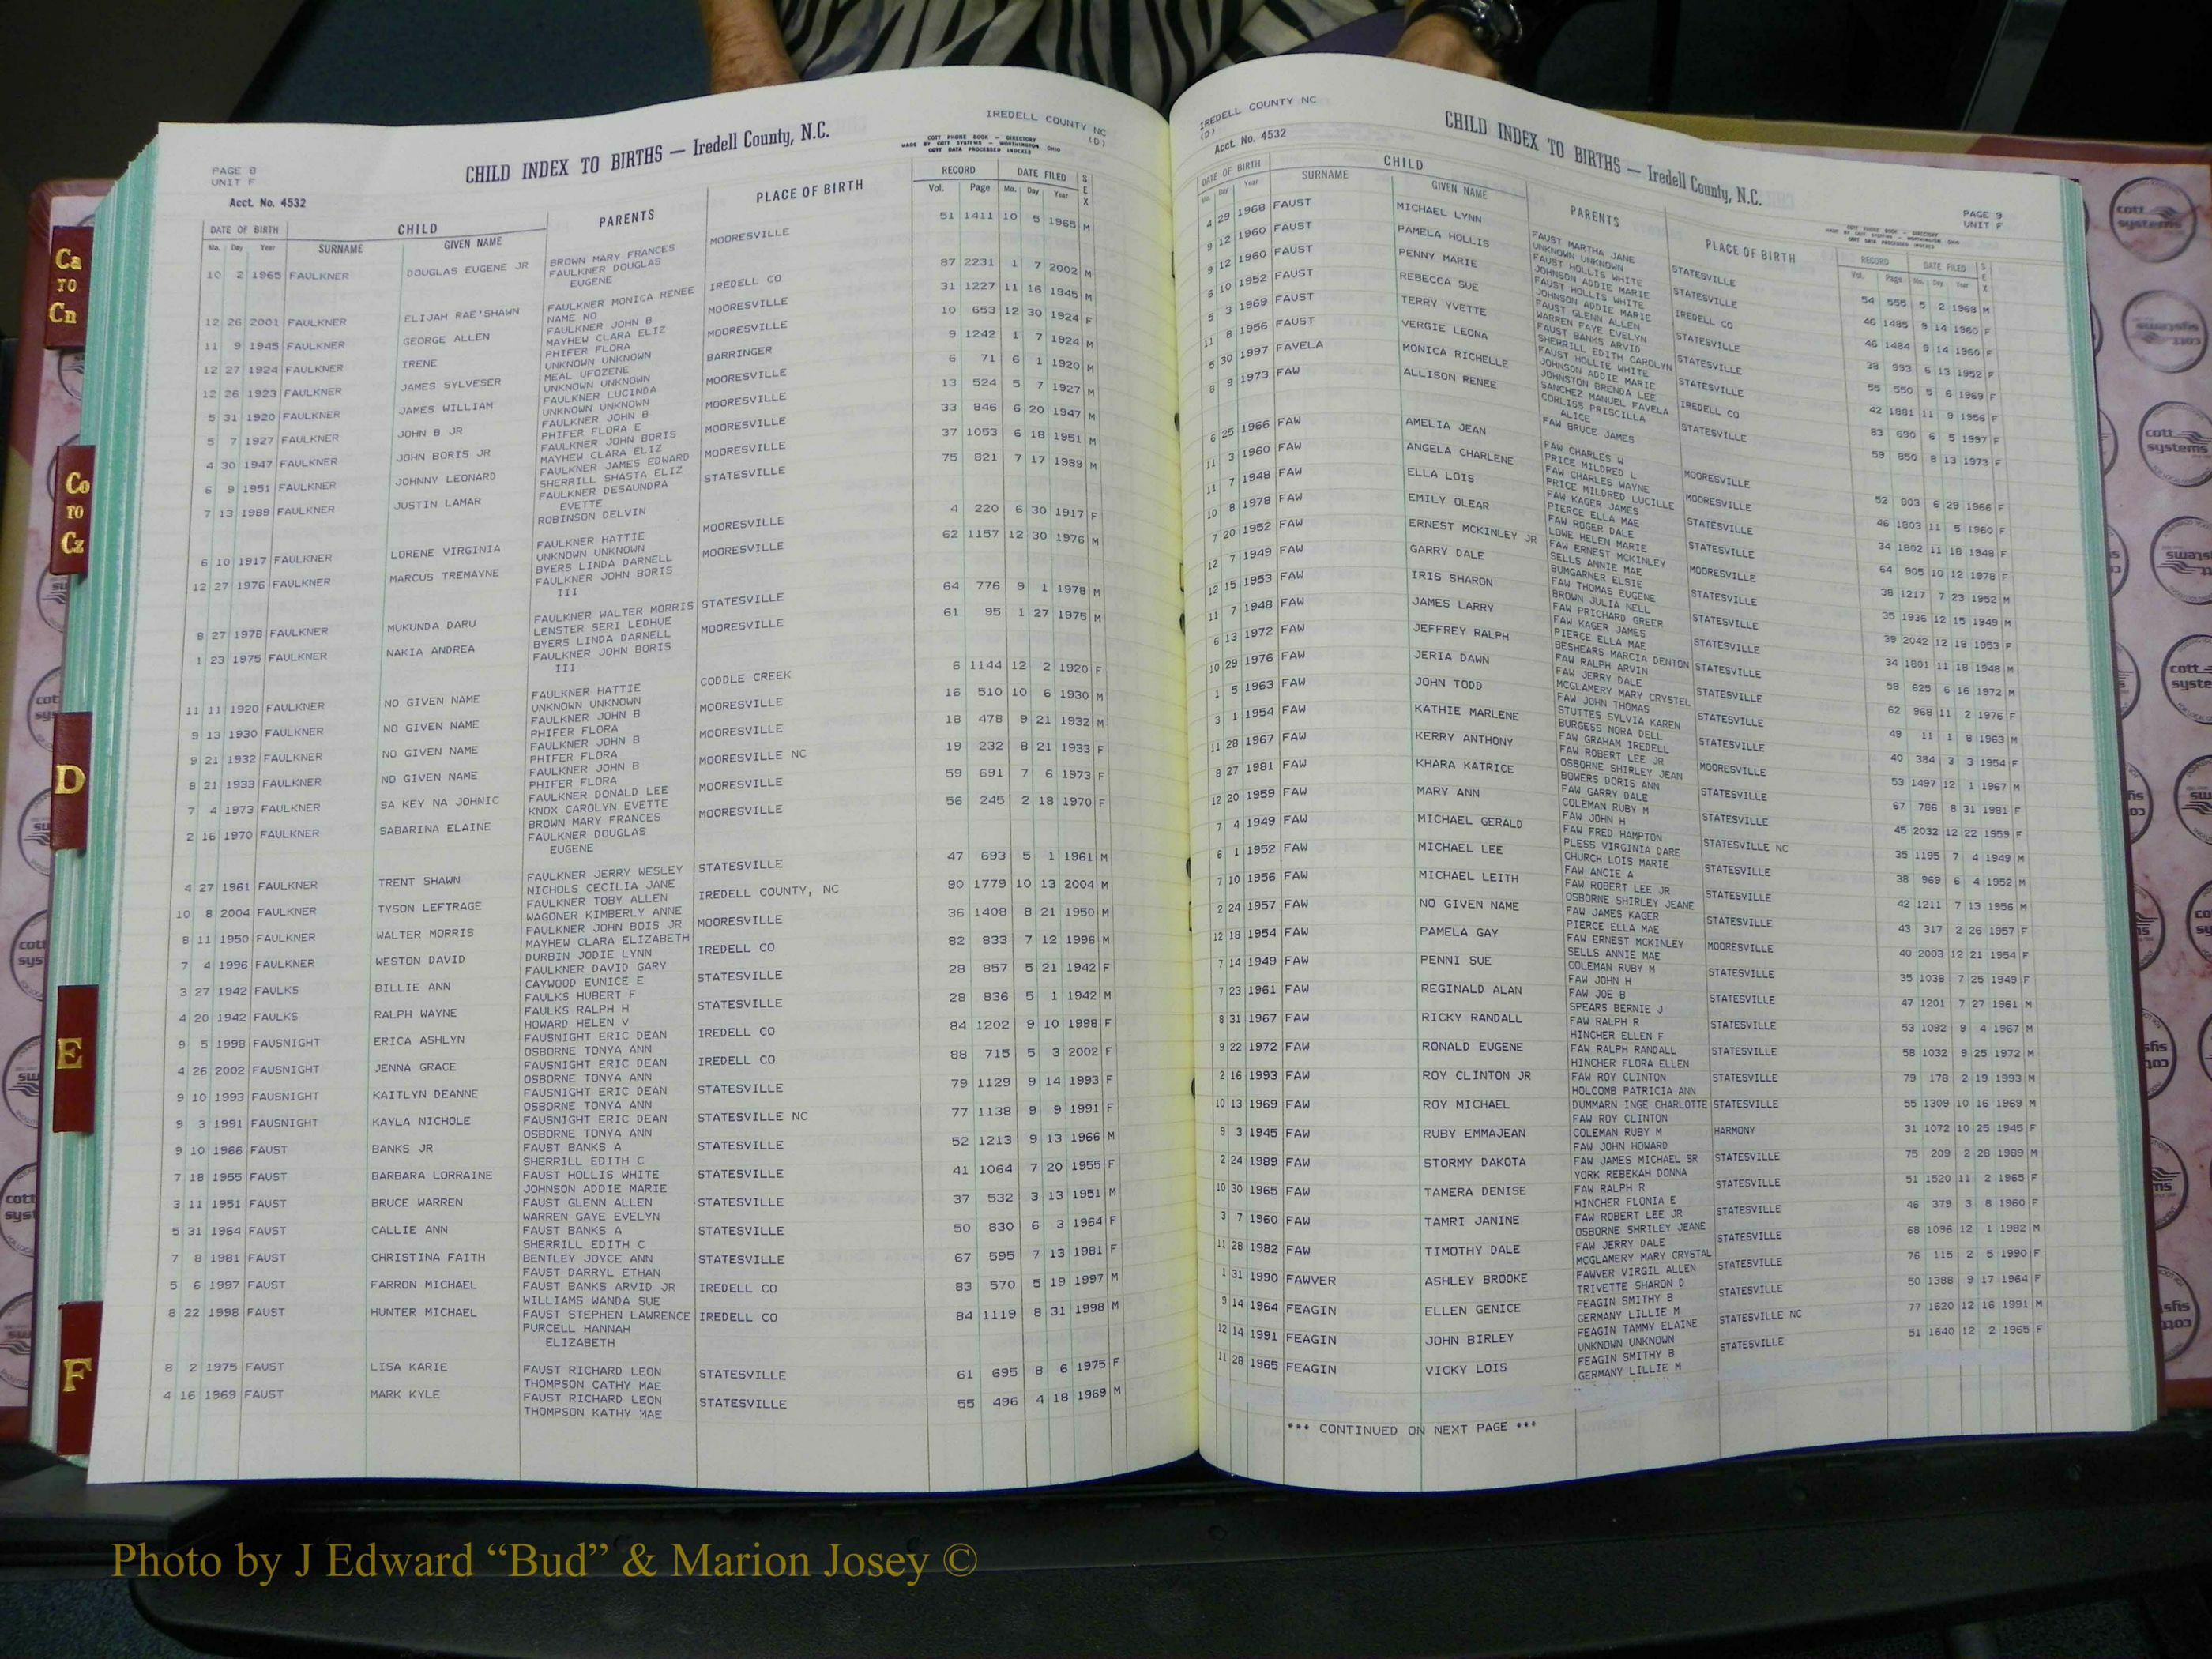 IREDELL COUNTY NC
(D)
COTT PHONE BOOK — DIRECTORY
MADE BY COTT SYSTEMS — WORTHINGTON OHIO
COTT DATA PROCESSED INDEXES
CHILD INDEX TO BIRTHS — Iredell County, N.C.
PAGE 8
UNIT F
Acct. No. 4532
DATE OF BIRTH CHILD PARENTS PLACE OF BIRTH RECORD DATE FILED SEX
Mo. Day Year SURNAME GIVEN NAME Vol. Page Mo. Day Year
10 2 1965 FAULKNER DOUGLAS EUGENE JR BROWN MARY FRANCES MOORESVILLE 51 1411 10 5 1965 M
FAULKNER DOUGLAS
EUGENE
12 26 2001 FAULKNER ELIJAH RAE'SHAWN FAULKNER MONICA RENEE IREDELL CO 87 2231 1 7 2002 M
NAME NO
11 9 1945 FAULKNER GEORGE ALLEN FAULKNER JOHN B MOORESVILLE 31 1227 11 16 1945 M
MAYHEW CLARA ELIZ
12 27 1924 FAULKNER IRENE PHIFER FLORA MOORESVILLE 10 653 12 30 1924 F
UNKNOWN UNKNOWN
12 26 1923 FAULKNER JAMES SYLVESER MEAL UFOZENE BARRINGER 9 1242 1 7 1924 M
UNKNOWN UNKNOWN
5 31 1920 FAULKNER JAMES WILLIAM FAULKNER LUCINDA MOORESVILLE 6 71 6 1 1920 M
UNKNOWN UNKNOWN
5 7 1927 FAULKNER JOHN B JR FAULKNER JOHN B MOORESVILLE 13 524 5 7 1927 M
PHIFER FLORA E
4 30 1947 FAULKNER JOHN BORIS JR FAULKNER JOHN BORIS MOORESVILLE 33 846 6 20 1947 M
MAYHEW CLARA ELIZ
6 9 1951 FAULKNER JOHNNY LEONARD FAULKNER JAMES EDWARD MOORESVILLE 37 1053 6 18 1951 M
SHERRILL SHASTA ELIZ
7 13 1989 FAULKNER JUSTIN LAMAR FAULKNER DESAUNDRA STATESVILLE 75 821 7 17 1989 M
EVETTE
ROBINSON DELVIN
6 10 1917 FAULKNER LORENE VIRGINIA FAULKNER HATTIE MOORESVILLE 4 220 6 30 1917 F
UNKNOWN UNKNOWN
12 27 1976 FAULKNER MARCUS TREMAYNE BYERS LINDA DARNELL MOORESVILLE 62 1157 12 30 1976 M
FAULKNER JOHN BORIS
III
8 27 1978 FAULKNER MUKUNDA DARU FAULKNER WALTER MORRIS STATESVILLE 64 776 9 1 1978 M
LENSTER SERI LEDHUE
1 23 1975 FAULKNER NAKIA ANDREA BYERS LINDA DARNELL MOORESVILLE 61 95 1 27 1975 M
FAULKNER JOHN BORIS
III
11 11 1920 FAULKNER NO GIVEN NAME FAULKNER HATTIE CODDLE CREEK 6 1144 12 2 1920 F
UNKNOWN UNKNOWN
9 13 1930 FAULKNER NO GIVEN NAME FAULKNER JOHN B MOORESVILLE 16 510 10 6 1930 M
PHIFER FLORA
9 21 1932 FAULKNER NO GIVEN NAME FAULKNER JOHN B MOORESVILLE 18 478 9 21 1932 M
PHIFER FLORA
8 21 1933 FAULKNER NO GIVEN NAME FAULKNER JOHN B MOORESVILLE NC 19 232 8 21 1933 F
PHIFER FLORA
7 4 1973 FAULKNER SA KEY NA JOHNIC FAULKNER DONALD LEE MOORESVILLE 59 691 7 6 1973 F
KNOX CAROLYN EVETTE
2 16 1970 FAULKNER SABARINA ELAINE BROWN MARY FRANCES MOORESVILLE 56 245 2 18 1970 F
FAULKNER DOUGLAS
EUGENE
4 27 1961 FAULKNER TRENT SHAWN FAULKNER JERRY WESLEY STATESVILLE 47 693 5 1 1961 M
NICHOLS CECILIA JANE
10 8 2004 FAULKNER TYSON LEFTRAGE FAULKNER TOBY ALLEN IREDELL COUNTY, NC 90 1779 10 13 2004 M
WAGONER KIMBERLY ANNE
8 11 1950 FAULKNER WALTER MORRIS FAULKNER JOHN BOIS JR MOORESVILLE 36 1408 8 21 1950 M
MAYHEW CLARA ELIZABETH
7 4 1996 FAULKNER WESTON DAVID DURBIN JODIE LYNN IREDELL CO 82 833 7 12 1996 M
FAULKNER DAVID GARY
3 27 1942 FAULKS BILLIE ANN CAYWOOD EUNICE E STATESVILLE 28 857 5 21 1942 F
FAULKS HUBERT F
4 20 1942 FAULKS RALPH WAYNE FAULKS RALPH H STATESVILLE 28 836 5 1 1942 M
HOWARD HELEN V
9 5 1998 FAUSNIGHT ERICA ASHLYN FAUSNIGHT ERIC DEAN IREDELL CO 84 1202 9 10 1998 F
OSBORNE TONYA ANN
4 26 2002 FAUSNIGHT JENNA GRACE FAUSNIGHT ERIC DEAN IREDELL CO 88 715 5 3 2002 F
OSBORNE TONYA ANN
9 10 1993 FAUSNIGHT KAITLYN DEANNE FAUSNIGHT ERIC DEAN STATESVILLE 79 1129 9 14 1993 F
OSBORNE TONYA ANN
9 3 1991 FAUSNIGHT KAYLA NICHOLE FAUSNIGHT ERIC DEAN STATESVILLE NC 77 1138 9 9 1991 F
OSBORNE TONYA ANN
9 10 1966 FAUST BANKS JR FAUST BANKS A STATESVILLE 52 1213 9 13 1966 M
SHERRILL EDITH C
7 18 1955 FAUST BARBARA LORRAINE FAUST HOLLIS WHITE STATESVILLE 41 1064 7 20 1955 F
JOHNSON ADDIE MARIE
3 11 1951 FAUST BRUCE WARREN FAUST GLENN ALLEN STATESVILLE 37 532 3 13 1951 M
WARREN GAYE EVELYN
5 31 1964 FAUST CALLIE ANN FAUST BANKS A STATESVILLE 50 830 6 3 1964 F
SHERRILL EDITH C
7 8 1981 FAUST CHRISTINA FAITH BENTLEY JOYCE ANN STATESVILLE 67 595 7 13 1981 F
FAUST DARRYL ETHAN
5 6 1997 FAUST FARRON MICHAEL FAUST BANKS ARVID JR IREDELL CO 83 570 5 19 1997 M
WILLIAMS WANDA SUE
8 22 1998 FAUST HUNTER MICHAEL FAUST STEPHEN LAWRENCE IREDELL CO 84 1119 8 31 1998 M
PURCELL HANNAH
ELIZABETH
8 2 1975 FAUST LISA KARIE FAUST RICHARD LEON STATESVILLE 61 695 8 6 1975 F
THOMPSON CATHY MAE
4 16 1969 FAUST MARK KYLE FAUST RICHARD LEON STATESVILLE 55 496 4 18 1969 M
THOMPSON KATHY MAE
IREDELL COUNTY NC
(D)
Acct. No. 4532
CHILD INDEX TO BIRTHS — Iredell County, N.C.
PAGE 9
UNIT F
DATE OF BIRTH CHILD PARENTS PLACE OF BIRTH RECORD DATE FILED SEX
Mo. Day Year SURNAME GIVEN NAME Vol. Page Mo. Day Year
4 29 1968 FAUST MICHAEL LYNN FAUST MARTHA JANE STATESVILLE 54 555 5 2 1968 M
UNKNOWN UNKNOWN
9 12 1960 FAUST PAMELA HOLLIS FAUST HOLLIS WHITE STATESVILLE 46 1485 9 14 1960 F
JOHNSON ADDIE MARIE
9 12 1960 FAUST PENNY MARIE FAUST HOLLIS WHITE IREDELL CO 46 1484 9 14 1960 F
JOHNSON ADDIE MARIE
6 10 1952 FAUST REBECCA SUE FAUST GLENN ALLEN STATESVILLE 38 993 6 13 1952 F
WARREN FAYE EVELYN
5 3 1969 FAUST TERRY YVETTE FAUST BANKS ARVID STATESVILLE 55 550 5 6 1969 F
SHERRILL EDITH CAROLYN
11 8 1956 FAUST VERGIE LEONA FAUST HOLLIE WHITE STATESVILLE 42 1881 11 9 1956 F
JOHNSON ADDIE MARIE
5 30 1997 FAVELA MONICA RICHELLE JOHNSTON BRENDA LEE IREDELL CO 83 690 6 5 1997 F
SANCHEZ MANUEL FAVELA
8 9 1973 FAW ALLISON RENEE CORLISS PRISCILLA STATESVILLE 59 850 8 13 1973 F
ALICE
FAW BRUCE JAMES
6 25 1966 FAW AMELIA JEAN FAW CHARLES W MOORESVILLE 52 803 6 29 1966 F
PRICE MILDRED L
11 3 1960 FAW ANGELA CHARLENE FAW CHARLES WAYNE MOORESVILLE 46 1803 11 5 1960 F
PRICE MILDRED LUCILLE
11 7 1948 FAW ELLA LOIS FAW KAGER JAMES STATESVILLE 34 1802 11 18 1948 F
PIERCE ELLA MAE
10 8 1978 FAW EMILY OLEAR FAW ROGER DALE STATESVILLE 64 905 10 12 1978 F
LOWE HELEN MARIE
7 20 1952 FAW ERNEST MCKINLEY JR FAW ERNEST MCKINLEY MOORESVILLE 38 1217 7 23 1952 M
SELLS ANNIE MAE
12 7 1949 FAW GARRY DALE BUMGARNER ELSIE STATESVILLE 35 1936 12 15 1949 M
FAW THOMAS EUGENE
12 15 1953 FAW IRIS SHARON BROWN JULIA NELL STATESVILLE 39 2042 12 18 1953 F
FAW PRICHARD GREER
11 7 1948 FAW JAMES LARRY FAW KAGER JAMES STATESVILLE 34 1801 11 18 1948 M
PIERCE ELLA MAE
6 13 1972 FAW JEFFREY RALPH BESHEARS MARCIA DENTON STATESVILLE 58 625 6 16 1972 M
FAW RALPH ARVIN
10 29 1976 FAW JERIA DAWN FAW JERRY DALE STATESVILLE 62 968 11 2 1976 F
MCGLAMERY MARY CRYSTEL
1 5 1963 FAW JOHN TODD FAW JOHN THOMAS STATESVILLE 49 11 1 8 1963 M
STUTTES SYLVIA KAREN
3 1 1954 FAW KATHIE MARLENE BURGESS NORA DELL MOORESVILLE 40 384 3 3 1954 F
FAW GRAHAM IREDELL
11 28 1967 FAW KERRY ANTHONY FAW ROBERT LEE JR STATESVILLE 53 1497 12 1 1967 M
OSBORNE SHIRLEY JEAN
8 27 1981 FAW KHARA KATRICE BOWERS DORIS ANN STATESVILLE 67 786 8 31 1981 F
FAW GARRY DALE
12 20 1959 FAW MARY ANN COLEMAN RUBY M STATESVILLE NC 45 2032 12 22 1959 F
FAW JOHN H
7 4 1949 FAW MICHAEL GERALD FAW FRED HAMPTON STATESVILLE 35 1195 7 4 1949 M
PLESS VIRGINIA DARE
6 1 1952 FAW MICHAEL LEE CHURCH LOIS MARIE STATESVILLE 38 969 6 4 1952 M
FAW ANCIE A
7 10 1956 FAW MICHAEL LEITH FAW ROBERT LEE JR STATESVILLE 42 1211 7 13 1956 M
OSBORNE SHIRLEY JEANE
2 24 1957 FAW NO GIVEN NAME FAW JAMES KAGER STATESVILLE 43 317 2 26 1957 F
PIERCE ELLA MAE
12 18 1954 FAW PAMELA GAY FAW ERNEST MCKINLEY MOORESVILLE 40 2003 12 21 1954 F
SELLS ANNIE MAE
7 14 1949 FAW PENNI SUE COLEMAN RUBY M STATESVILLE 35 1038 7 25 1949 F
FAW JOHN H
7 23 1961 FAW REGINALD ALAN FAW JOE B STATESVILLE 47 1201 7 27 1961 M
SPEARS BERNIE J
8 31 1967 FAW RICKY RANDALL FAW RALPH R STATESVILLE 53 1092 9 4 1967 M
HINCHER ELLEN F
9 22 1972 FAW RONALD EUGENE FAW RALPH RANDALL STATESVILLE 58 1032 9 25 1972 M
HINCHER FLORA ELLEN
2 16 1993 FAW ROY CLINTON JR FAW ROY CLINTON STATESVILLE 79 178 2 19 1993 M
HOLCOMB PATRICIA ANN
10 13 1969 FAW ROY MICHAEL DUMMARN INGE CHARLOTTE STATESVILLE 55 1309 10 16 1969 M
FAW ROY CLINTON
9 3 1945 FAW RUBY EMMAJEAN COLEMAN RUBY M HARMONY 31 1072 10 25 1945 F
FAW JOHN HOWARD
2 24 1989 FAW STORMY DAKOTA FAW JAMES MICHAEL SR STATESVILLE 75 209 2 28 1989 M
YORK REBEKAH DONNA
10 30 1965 FAW TAMERA DENISE FAW RALPH R STATESVILLE 51 1520 11 2 1965 F
HINCHER FLONIA E
3 7 1960 FAW TAMRI JANINE FAW ROBERT LEE JR STATESVILLE 46 379 3 8 1960 F
OSBORNE SHRILEY JEANE
11 28 1982 FAW TIMOTHY DALE FAW JERRY DALE STATESVILLE 68 1096 12 1 1982 M
MCGLAMERY MARY CRYSTAL
1 31 1990 FAWVER ASHLEY BROOKE FAWVER VIRGIL ALLEN STATESVILLE 76 115 2 5 1990 F
TRIVETTE SHARON D
9 14 1964 FEAGIN ELLEN GENICE FEAGIN SMITHY B STATESVILLE 50 1388 9 17 1964 F
GERMANY LILLIE M
12 14 1991 FEAGIN JOHN BIRLEY FEAGIN TAMMY ELAINE STATESVILLE NC 77 1620 12 16 1991 M
UNKNOWN UNKNOWN
11 28 1965 FEAGIN VICKY LOIS FEAGIN SMITHY B STATESVILLE 51 1640 12 2 1965 F
GERMANY LILLIE M
*** CONTINUED ON NEXT PAGE ***
Ca
TO
Cn
Co
TO
Cz
D
E
F
cott
systems
Photo by J Edward “Bud” & Marion Josey ©